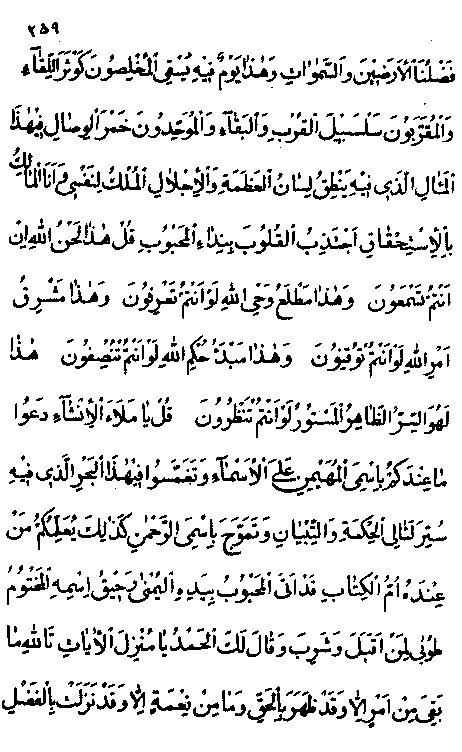 ٢٥٩
فَضْلُنَا الْأَرَضِينَ وَالسَّمٰوَاتِ وَهٰذَا يَوْمٌ فِيهِ يُسْقَى الْمُخْلِصُونَ كَوْثَرَ اللِّقَآءِ
وَالْمُقَرَّبُونَ سَلْسَبِيلَ الْقُرْبِ وَالْبَقَآءِ وَالْمُوَحِّدُونَ خَمْرَ الْوِصَالِ فِي هٰذَا
الْمَآلِ الَّذِي فِيهِ يَنْطِقُ لِسَانُ الْعَظَمَةِ وَالْإِجْلَالِ الْمُلْكُ لِنَفْسِي وَأَنَا الْمَالِكُ
بِالْإِسْتِحْقَاقِ اجْتَذِبُ الْقُلُوبَ بِنِدَاءِ الْمَحْبُوبِ قُلْ هٰذَا لَحْنُ اللهِ إِنْ
أَنْتُمْ تَسْمَعُونَ وَهٰذَا مَطْلَعُ وَحْيِ اللهِ لَوْ أَنْتُمْ تَعْرِفُونَ وَهٰذَا مَشْرِقُ
أَمْرِ اللهِ لَوْ أَنْتُمْ تُوقِنُونَ وَهٰذَا مَبْدَءُ حُكْمِ اللهِ لَوْ أَنْتُمْ تُنْصِفُونَ هٰذَا
لَهُوَ السِّرُّ الظَّاهِرُ الْمَسْتُورُ لَوْ أَنْتُمْ تَنْظُرُونَ قُلْ يَا مَلَاءَ الْإِنْشَآءِ دَعُوا
مَا عِنْدَكُمْ بِاسْمِيَ الْمُهَيْمِنِ عَلَى الْأَسْمَآءِ وَتَغَمَّسُوا فِي هٰذَا الْبَحْرِ الَّذِي فِيهِ
سُتِرَ لَئَالِي الْحِكْمَةِ وَالتِّبْيَانِ وَتَمَوَّجَ بِاسْمِيَ الرَّحْمٰنِ كَذٰلِكَ يُعَلِّمُكُمْ مَنْ
عِنْدَهُ أُمُّ الْكِتَابِ قَدْ أَتَى الْمَحْبُوبُ بِيَدِهِ الْيُمْنٰى رَحِيقُ اسْمِهِ الْمَخْتُومُ
طُوبٰى لِمَنْ أَقْبَلَ وَشَرِبَ وَقَالَ لَكَ الْحَمْدُ يَا مُنْزِلَ الْآيَاتِ تَاللهِ مَا
بَقِيَ مِنْ أَمْرٍ إِلَّا وَقَدْ ظَهَرَ بِالْحَقِّ وَمَا مِنْ نِعْمَةٍ إِلَّا وَقَدْ نَزَلَتْ بِالْفَضْلِ